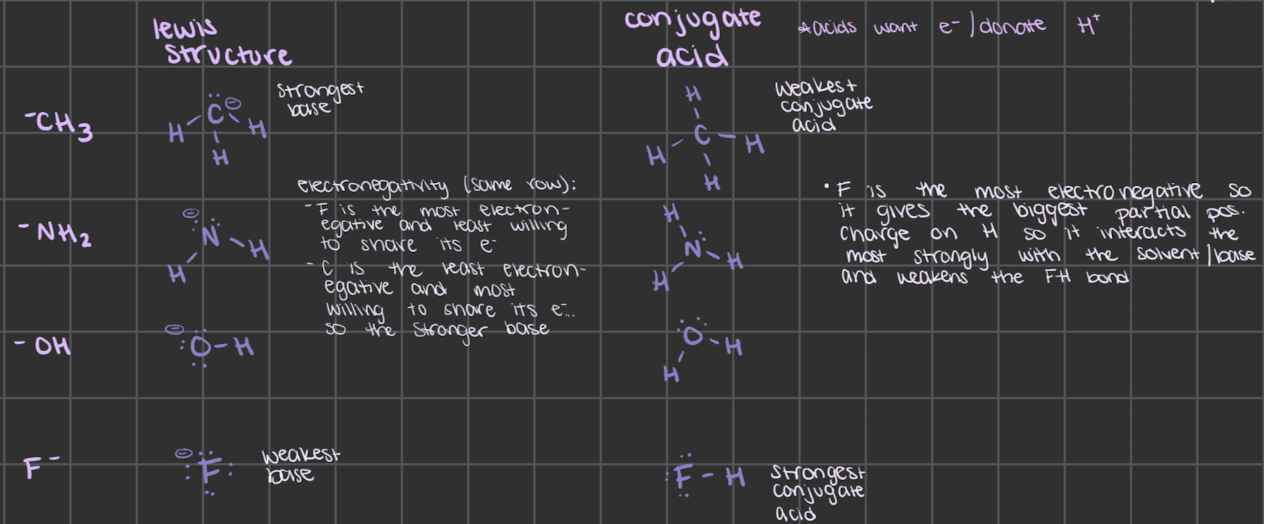 lewis structure
conjugate acid
*acids want e⁻/donate H⁺
⁻CH₃
C ⊖
H H
H
strongest
base
H
C
H H
H
weakest
conjugate
acid
electronegativity (same row):
- F is the most electron-
egative and least willing
to share its e⁻
- C is the least electron-
egative and most
willing to share its e⁻...
so the stronger base
• F is the most electronegative so
it gives the biggest partial pos.
charge on H so it interacts the
most strongly with the solvent/base
and weakens the FH bond
⁻NH₂
⊖
N H
H
H
N H
H
⁻OH
⊖
:O-H
O H
H
F⁻
⊖
:F:
weakest
base
:F-H
strongest
conjugate
acid